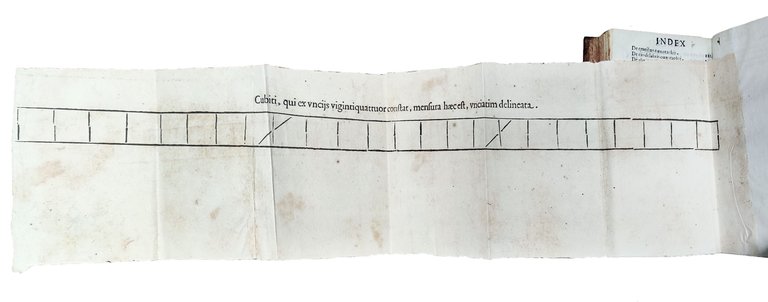 INDEX
Cubiti, qui ex vncijs vigintiquattuor constat, mensura hæc est, vnciatim delineata.